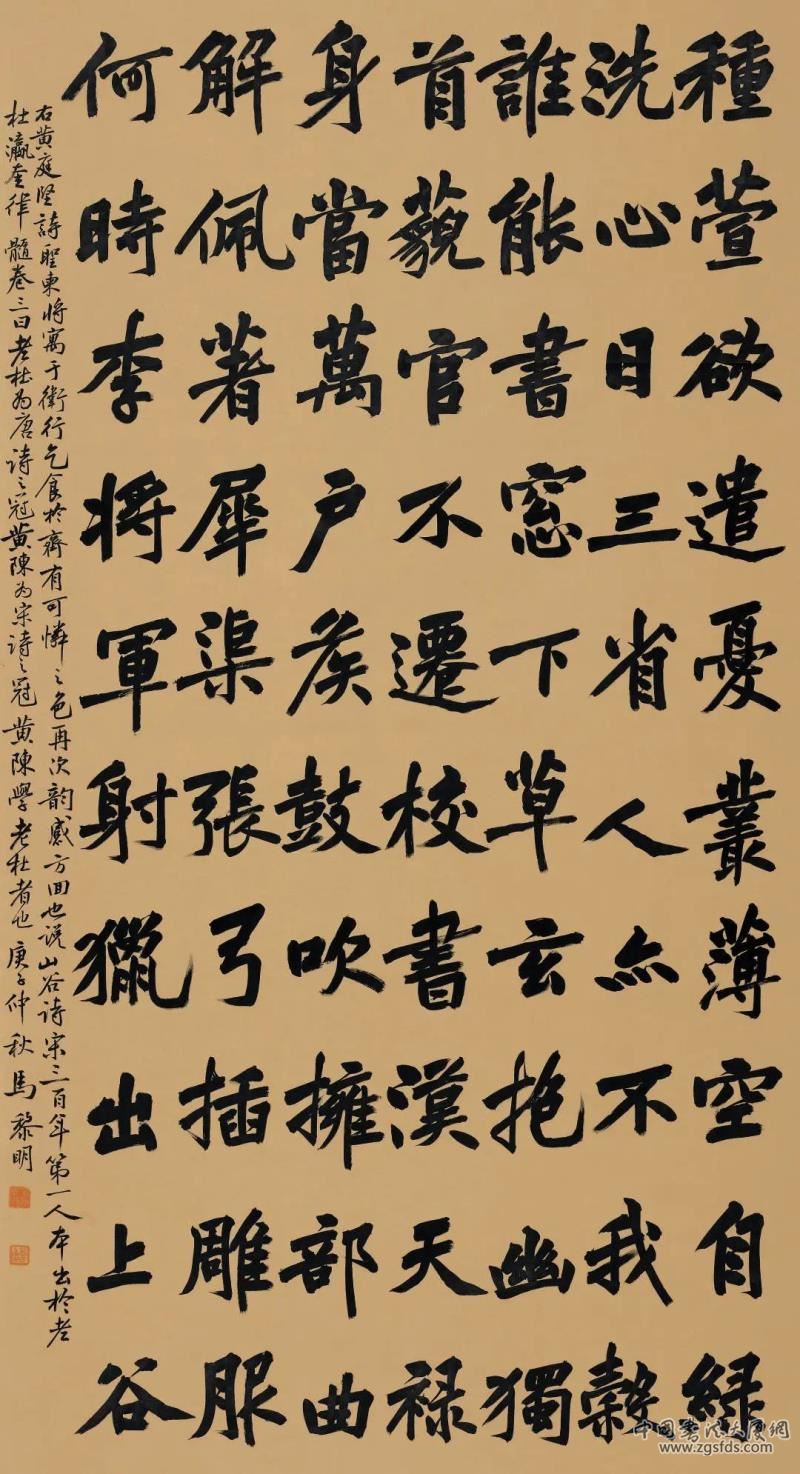 種萱欲遣憂叢薄空自緑
洗心日三省人亦不我穀
誰能書窓下草玄抱幽獨
首藐官不遷校書漢天禄
身當萬户侯鼓吹擁部曲
解佩著犀渠張弓插雕服
何時李將軍射獵出上谷
右黄庭堅詩聖柬將寓于衛行乞食於齊有可憐之色再次韵感方回也説山谷詩宋三百年第一人本出於老
杜瀛奎律髓卷三曰老杜为唐詩之冠黄陳为宋詩之冠黄陳學老杜者也庚子仲秋馬黎明
中国書法大厦網
www.zgsfds.com